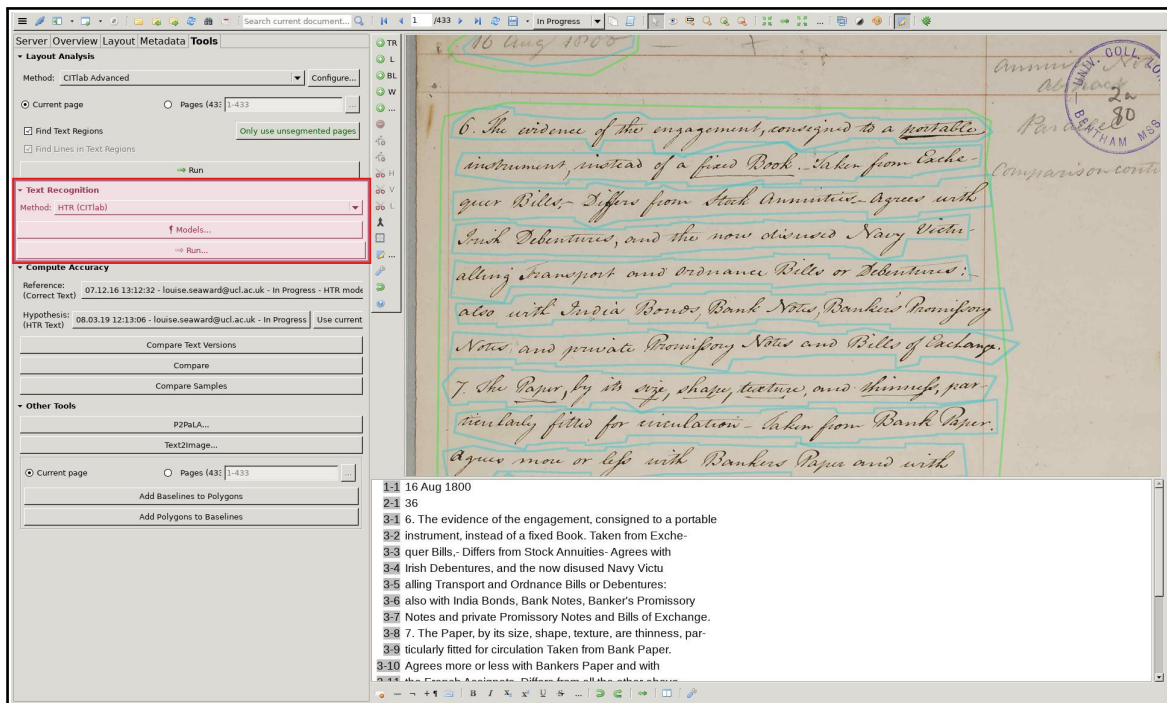 Search current document...
1 /433
In Progress
Server Overview Layout Metadata Tools
Layout Analysis
Method: CITlab Advanced
Configure...
Current page Pages (433 1-433 ...
Find Text Regions
Only use unsegmented pages
Find Lines in Text Regions
Run
Text Recognition
Method: HTR (CITlab)
Models...
Run...
Compute Accuracy
Reference:
(Correct Text)
07.12.16 13:12:32 - louise.seaward@ucl.ac.uk - In Progress - HTR mode
Hypothesis:
(HTR Text)
08.03.19 12:13:06 - louise.seaward@ucl.ac.uk - In Progress
Use current
Compare Text Versions
Compare
Compare Samples
Other Tools
P2PaLA...
Text2Image...
Current page Pages (433 1-433 ...
Add Baselines to Polygons
Add Polygons to Baselines
TR
L
BL
W
...
H
V
L
...
16 Aug 1800
UNIV. COLL. LO
2a
80
BENTHAM MSS
Parallel
Comparison conti
6. The evidence of the engagement, consigned to a portable
instrument, instead of a fixed Book. Taken from Exche-
quer Bills,- Differs from Stock Annuities- Agrees with
Irish Debentures, and the now disused Navy Victu-
alling Transport and Ordnance Bills or Debentures:-
also with India Bonds, Bank Notes, Bankers' Promissory
Notes, and private Promissory Notes and Bills of Exchange.
7. The Paper, by its size, shape, texture, and thinness, par-
ticularly fitted for circulation- Taken from Bank Paper.
Agrees more or less with Bankers Paper and with
1-1 16 Aug 1800
2-1 36
3-1 6. The evidence of the engagement, consigned to a portable
3-2 instrument, instead of a fixed Book. Taken from Exche-
3-3 quer Bills,- Differs from Stock Annuities- Agrees with
3-4 Irish Debentures, and the now disused Navy Victu
3-5 alling Transport and Ordnance Bills or Debentures:
3-6 also with India Bonds, Bank Notes, Banker's Promissory
3-7 Notes and private Promissory Notes and Bills of Exchange.
3-8 7. The Paper, by its size, shape, texture, are thinness, par-
3-9 ticularly fitted for circulation Taken from Bank Paper.
3-10 Agrees more or less with Bankers Paper and with
3-11 the French Assignats. Differs from all the other above